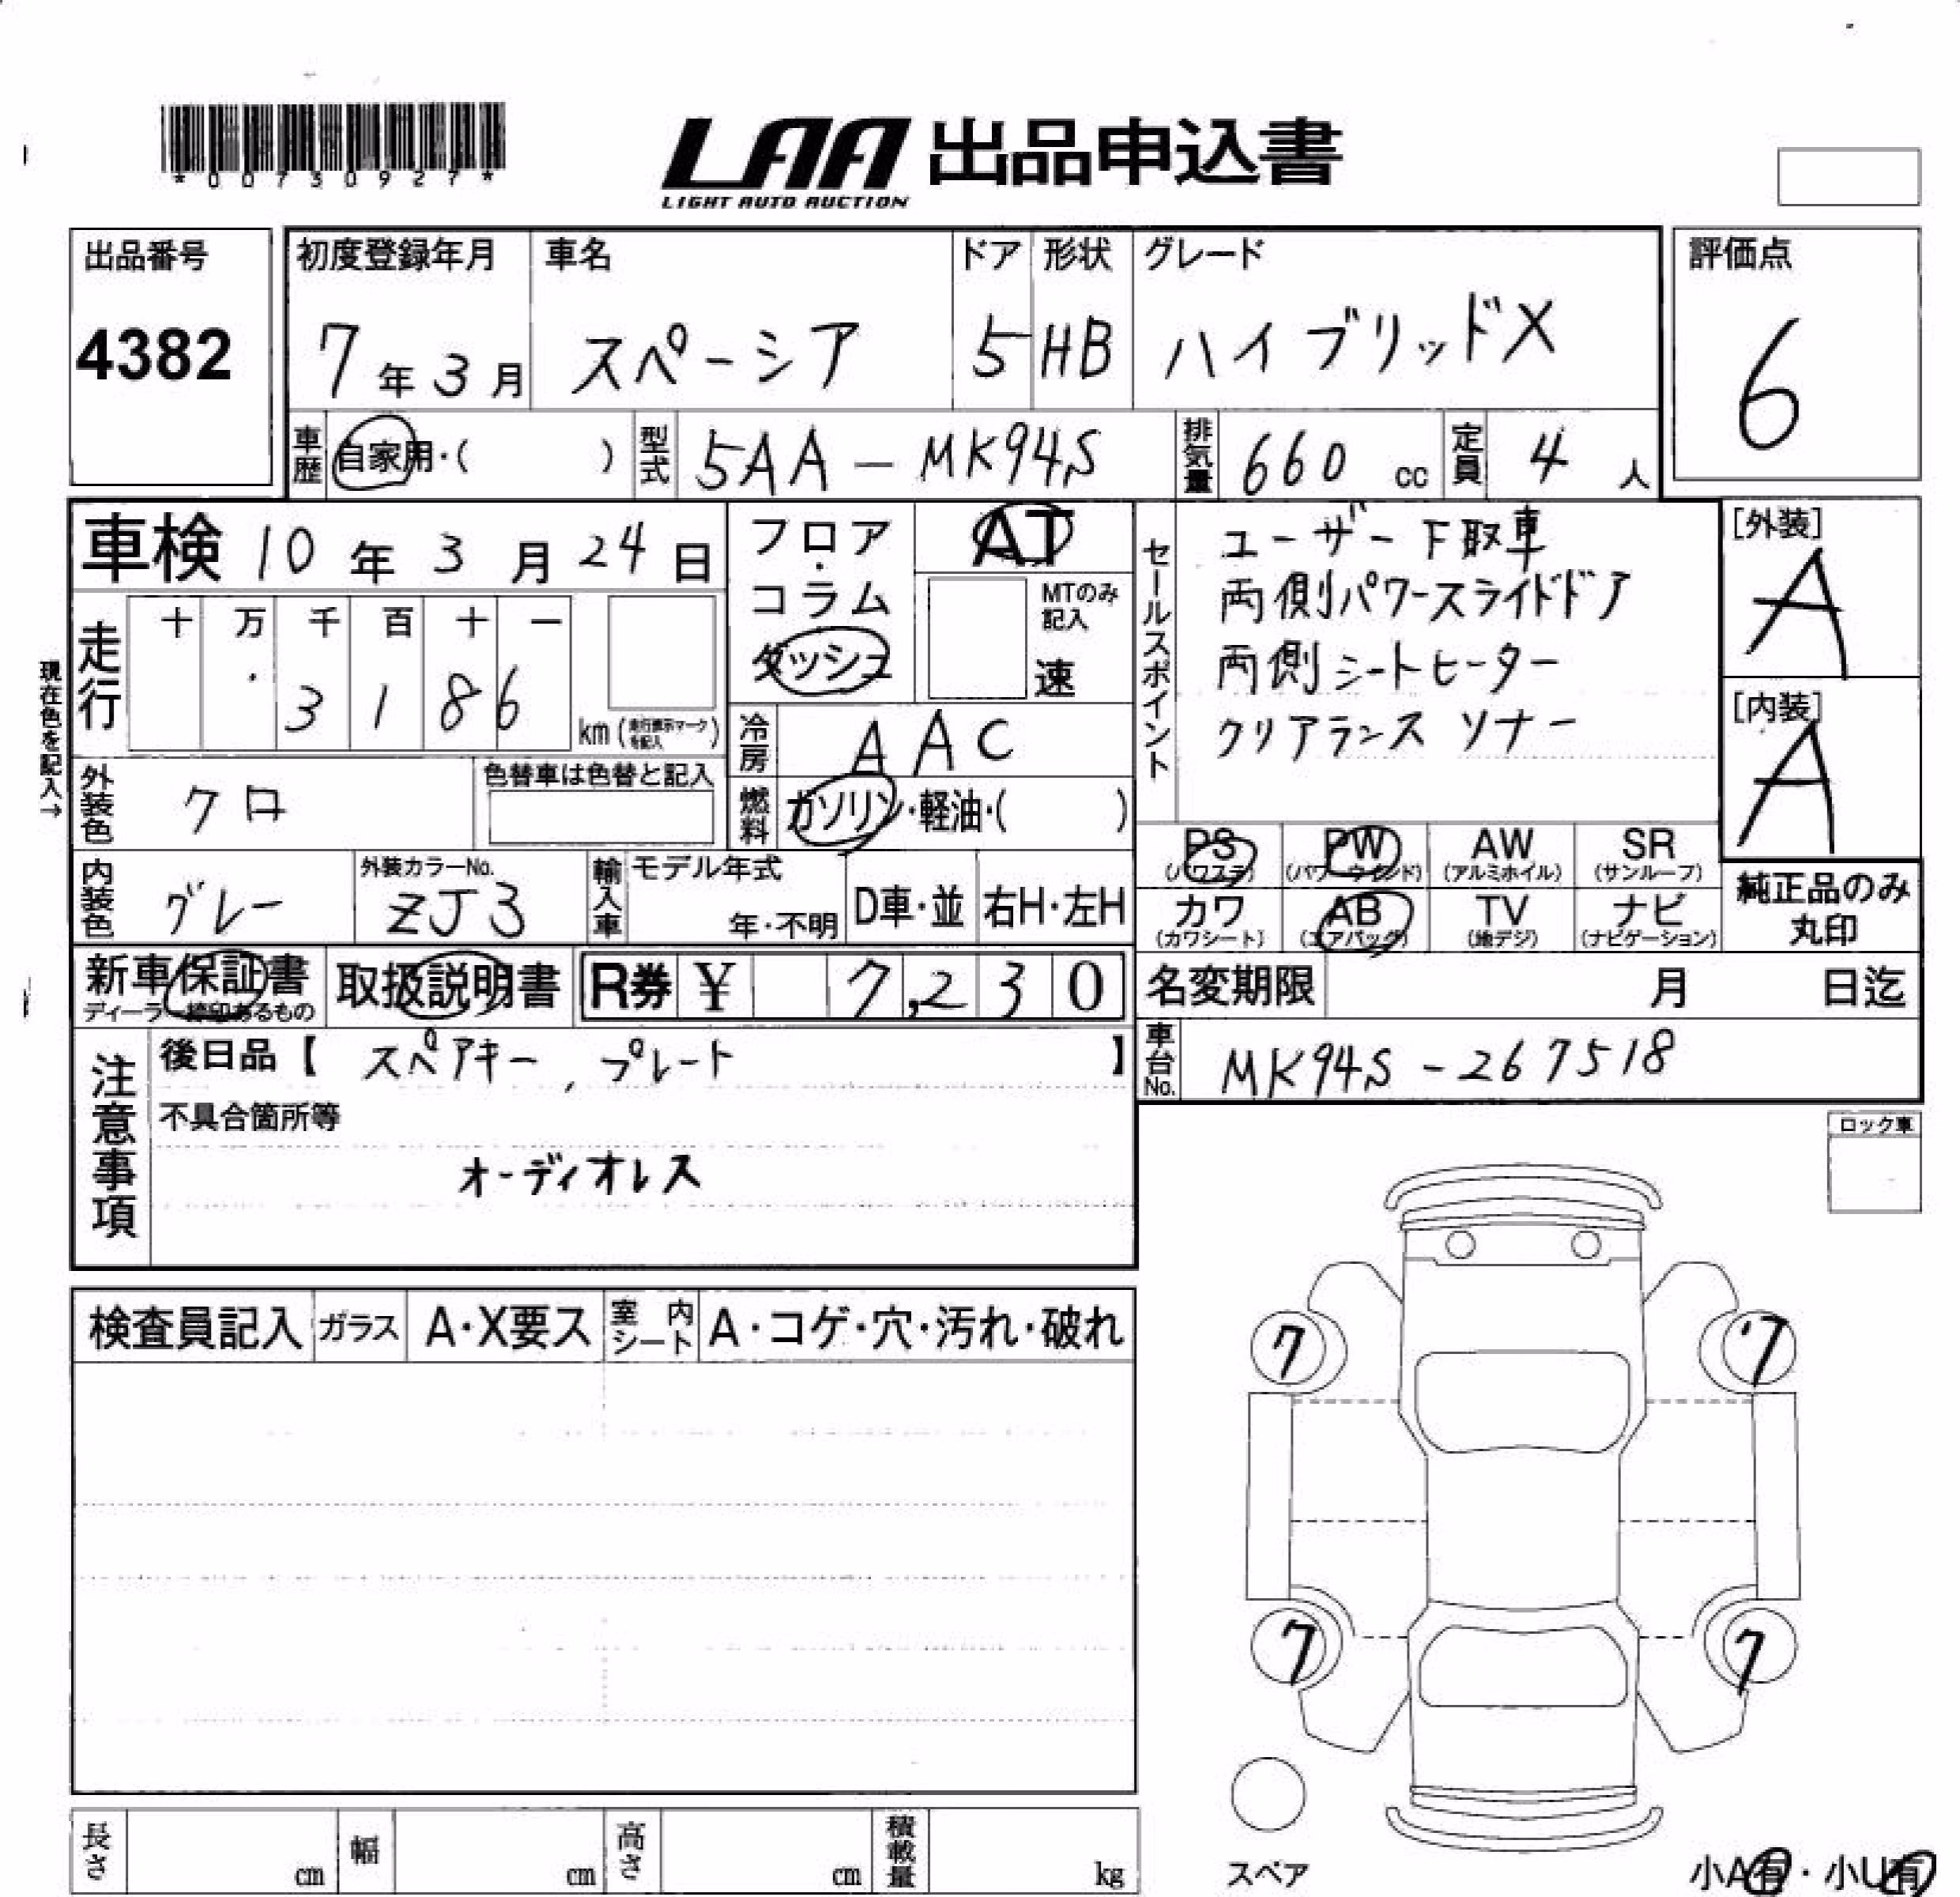 *00730927*
LAA 出品申込書
LIGHT AUTO AUCTION
出品番号
4382
初度登録年月
7年3月
車名
スペーシア
ドア
5
形状
HB
グレード
ハイブリッドX
評価点
6
車歴
自家用・( )
型式
5AA-MK94S
排気量
660 cc
定員
4 人
車検 10年3月24日
走行
十 万 千 百 十 一
3 1 8 6
km (走行表示マークを記入)
現在色を記入→
フロア・コラム
ダッシュ
AT
MTのみ記入
速
冷房
AAC
燃料
ガソリン・軽油・( )
外装色
クロ
色替車は色替と記入
内装色
グレー
外装カラーNo.
ZJ3
輸入車
モデル年式
年・不明
D車・並
右H・左H
セールスポイント
ユーザー下取車
両側パワースライドドア
両側シートヒーター
クリアランスソナー
[外装]
A
[内装]
A
PS (パワステ)
PW (パワーウインド)
AW (アルミホイル)
SR (サンルーフ)
カワ (カワシート)
AB (エアバッグ)
TV (地デジ)
ナビ (ナビゲーション)
純正品のみ
丸印
新車保証書
ディーラー捺印あるもの
取扱説明書
R券 ¥ 7,230
名変期限 月 日迄
車台No.
MK94S-267518
注意事項
後日品【 スペアキー, プレート 】
不具合箇所等
オーディオレス
ロック車
検査員記入
ガラス
A・X要ス
室内シート
A・コゲ・穴・汚れ・破れ
7
7
7
7
スペア
小A有・小U有
長さ cm
幅 cm
高さ cm
積載量 kg